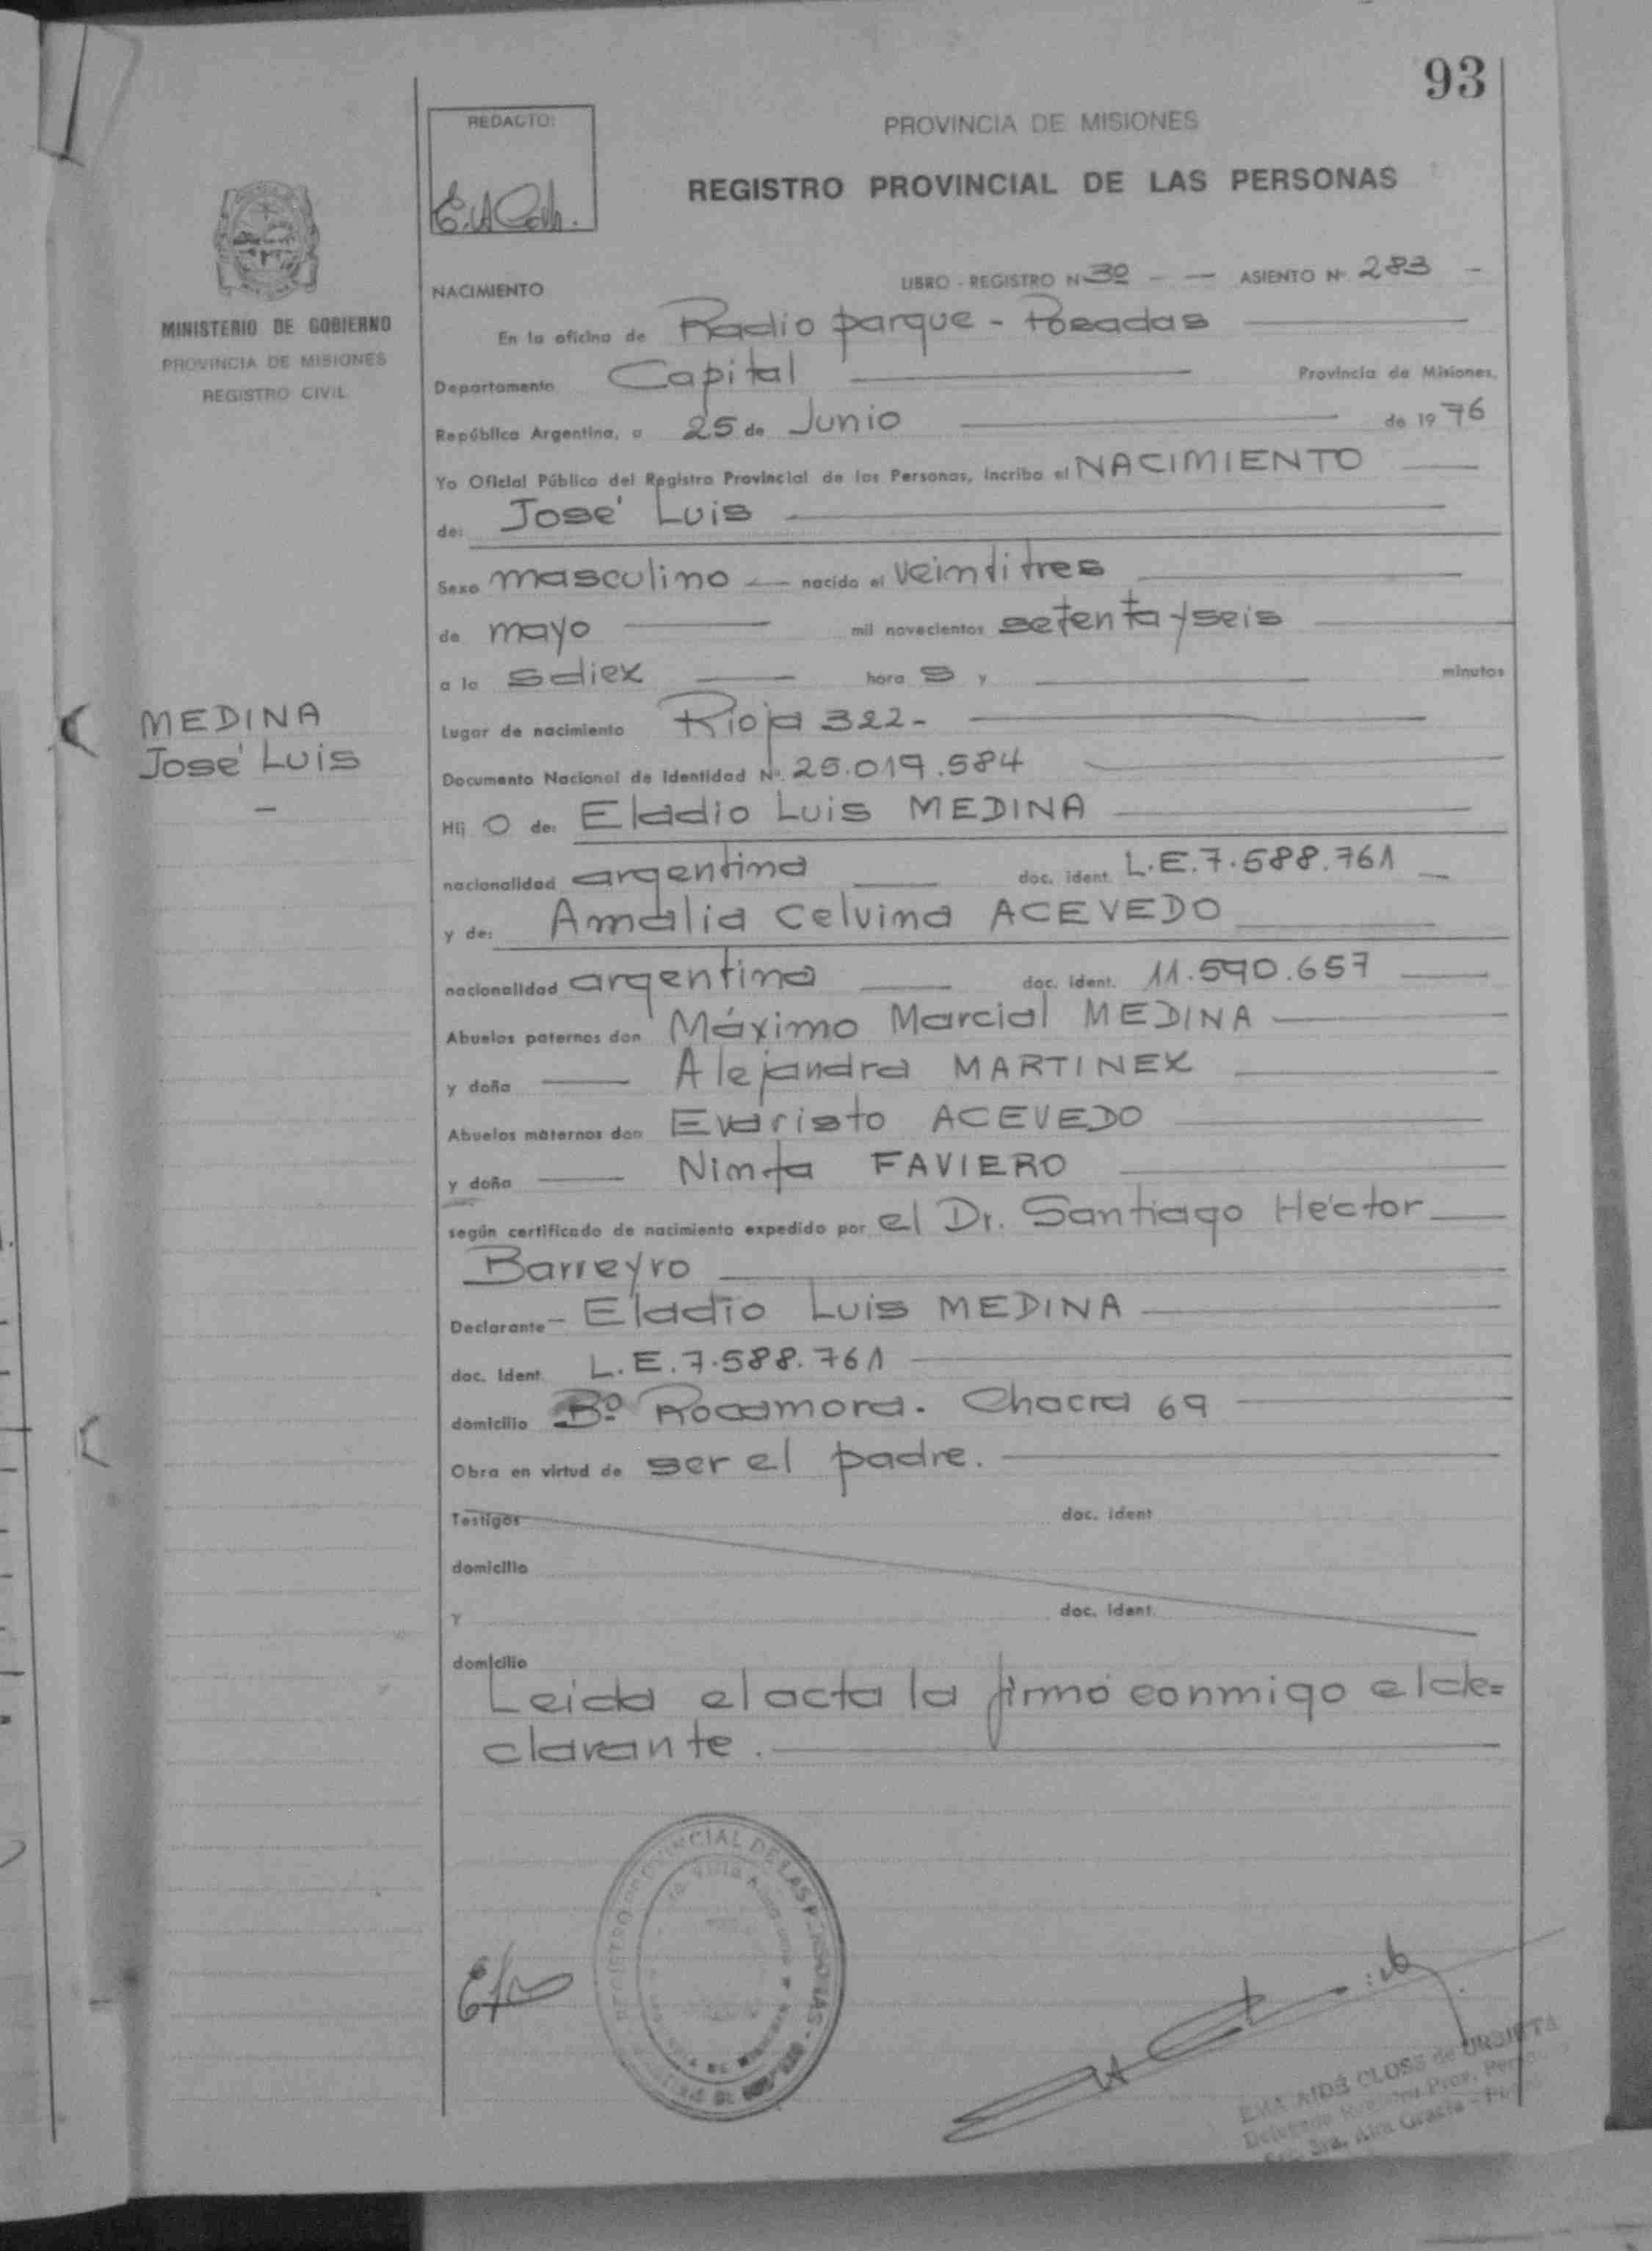 93
REDACTO:
PROVINCIA DE MISIONES
REGISTRO PROVINCIAL DE LAS PERSONAS
MINISTERIO DE GOBIERNO
PROVINCIA DE MISIONES
REGISTRO CIVIL
MEDINA
José Luis
NACIMIENTO LIBRO - REGISTRO Nº 3º - — ASIENTO Nº 283 -
En la oficina de Radio parque - Posadas
Departamento Capital Provincia de Misiones,
República Argentina, a 25 de Junio de 1976
Yo Oficial Público del Registro Provincial de las Personas, incribo el NACIMIENTO
de: José Luis
Sexo masculino — nacido el veintitres
de mayo mil novecientos setenta y seis
a la s diez hora s y minutos
Lugar de nacimiento Rioja 322-
Documento Nacional de Identidad Nº 25.019.584
Hij o de: Eladio Luis MEDINA
nacionalidad argentina doc. ident. L.E.7.588.761
y de: Amalia Celvina ACEVEDO
nacionalidad argentina doc. ident. 11.590.657
Abuelos paternos don Máximo Marcial MEDINA
y doña Alejandra MARTINEZ
Abuelos maternos don Evaristo ACEVEDO
y doña Ninfa FAVIERO
según certificado de nacimiento expedido por el Dr. Santiago Héctor
Barreyro
Declarante - Eladio Luis MEDINA
doc. Ident. L.E.7.588.761
domicilio Bº Rocamora. Chacra 69
Obra en virtud de ser el padre.
Testigos doc. ident
domicilio
y doc. ident.
domicilio
Leida el acta la firmó conmigo el de=
clarante.
EMA AIDÉ CLOSS de URBIETA